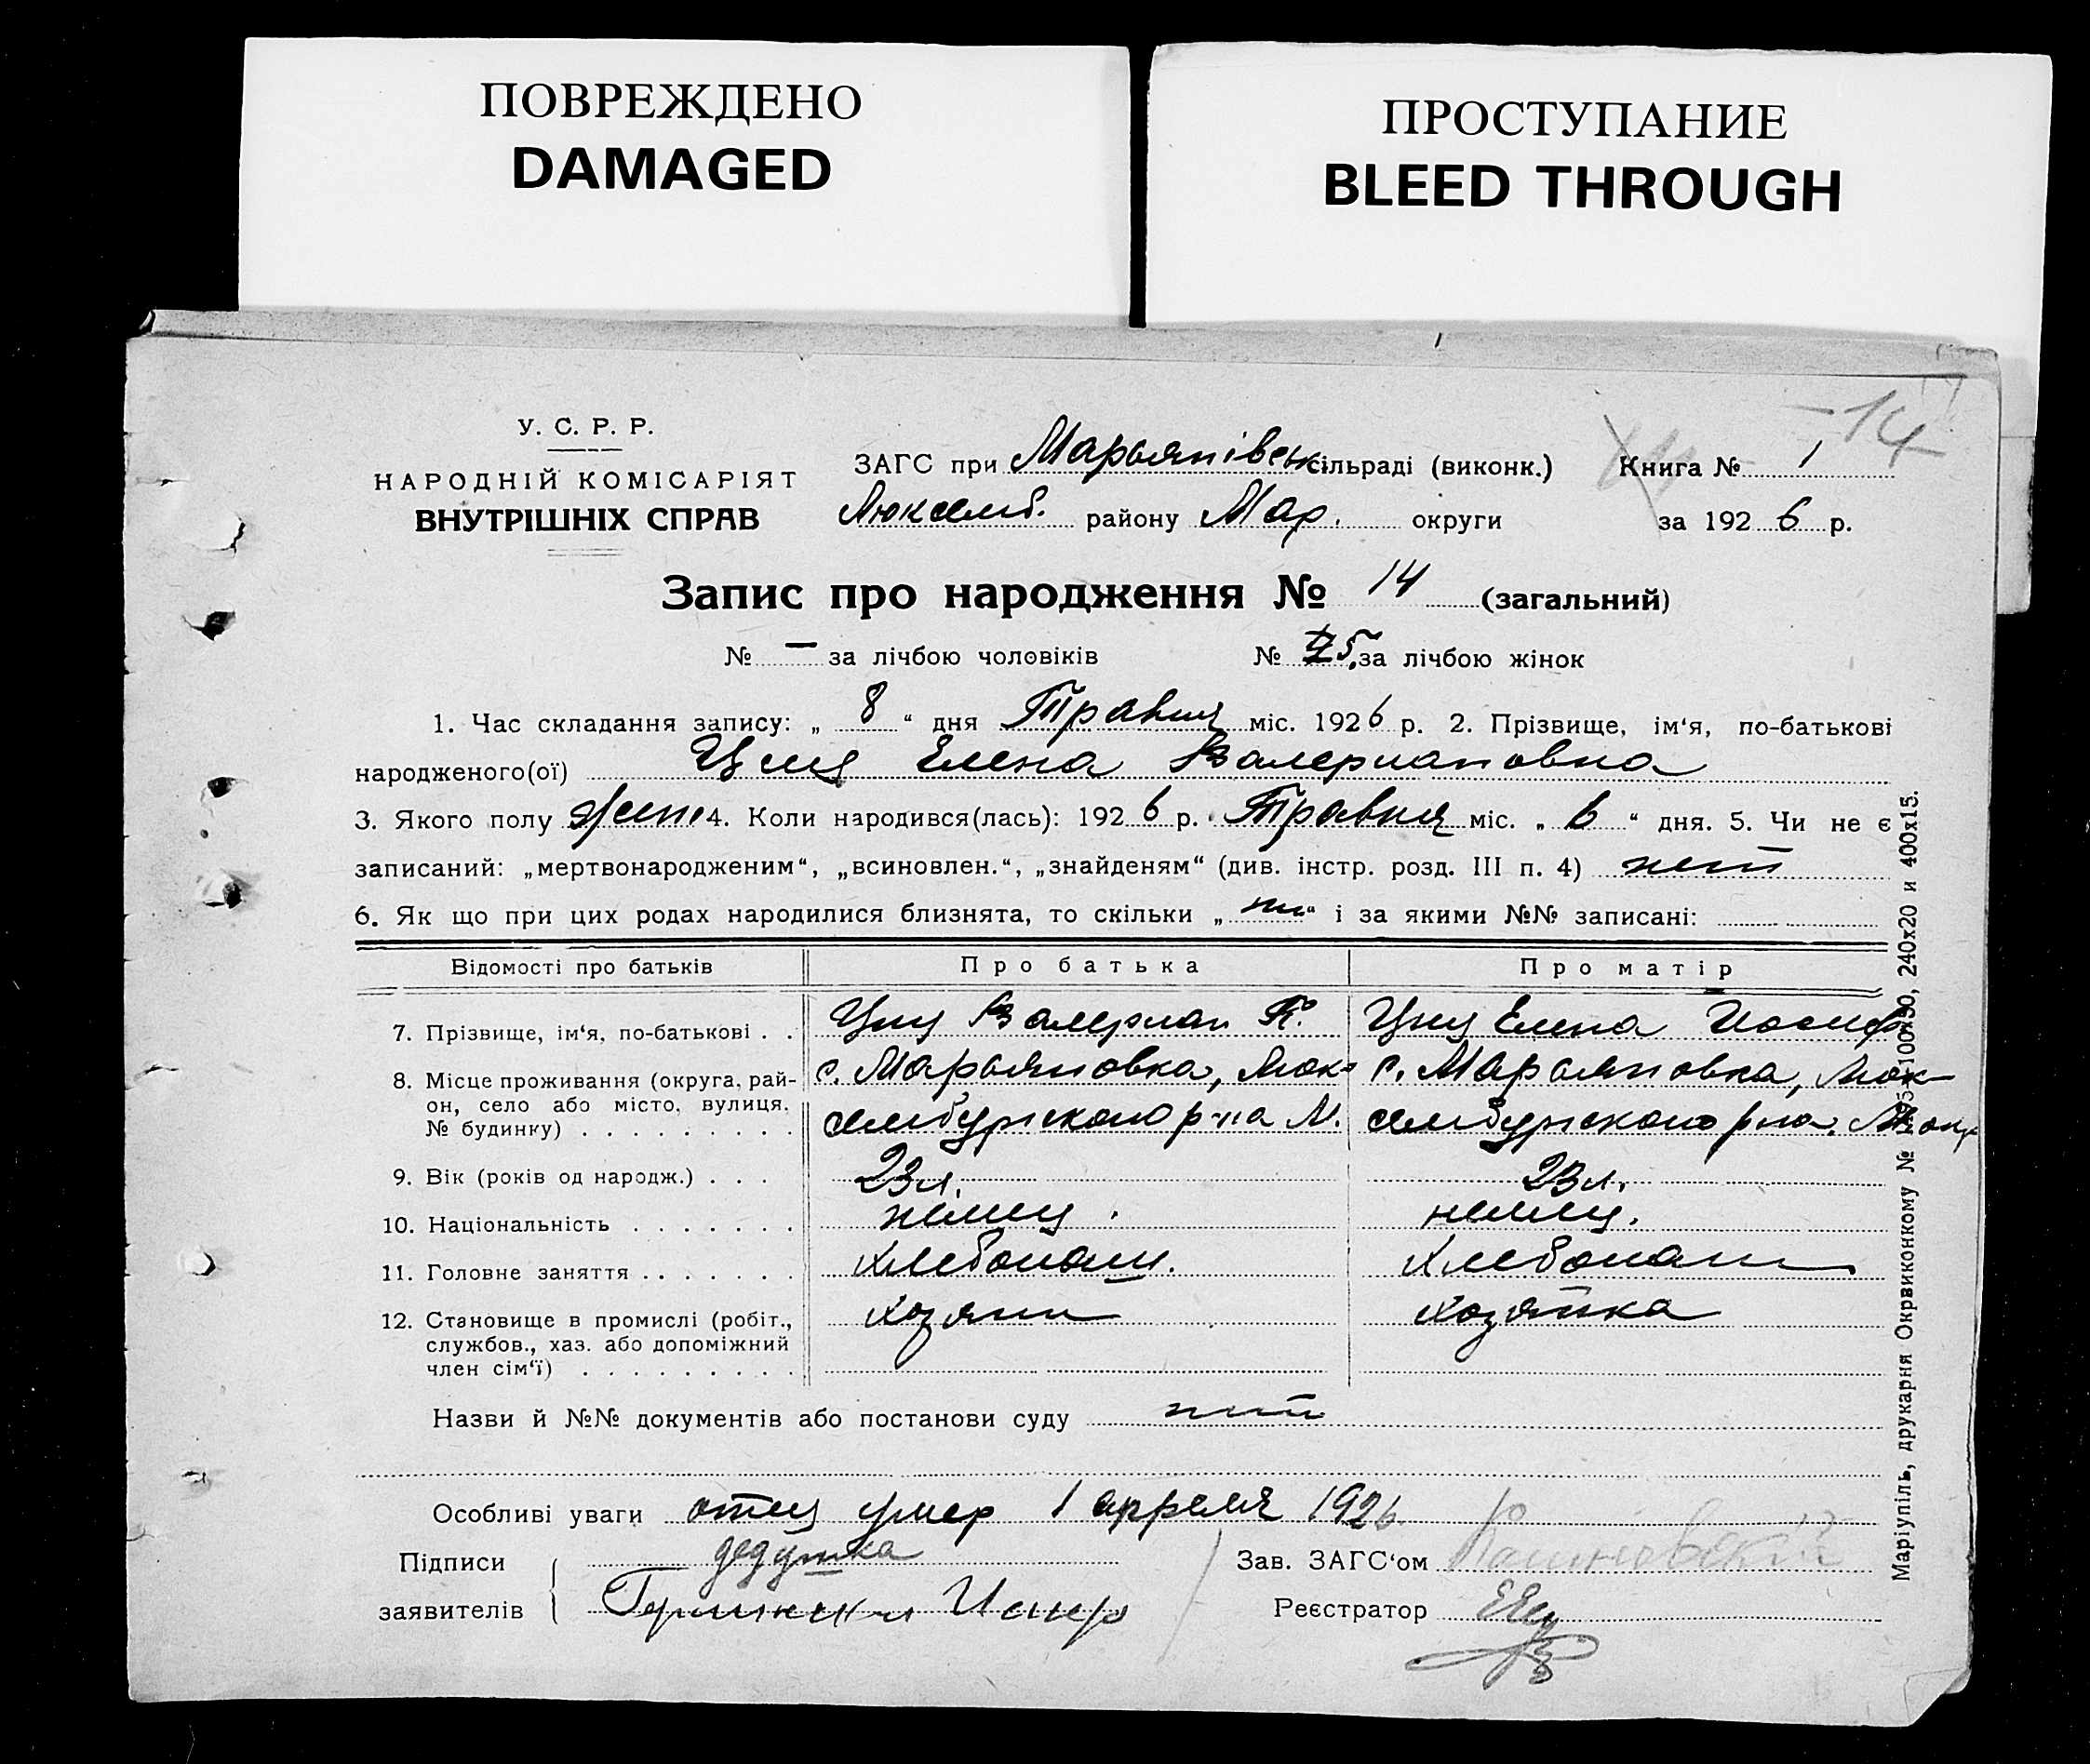 ПОВРЕЖДЕНО
DAMAGED
ПРОСТУПАНИЕ
BLEED THROUGH
14
У. С. Р. Р.
НАРОДНІЙ КОМІСАРІЯТ
ВНУТРІШНІХ СПРАВ
ЗАГС при Марьянівськ. сільраді (виконк.) Книга № 1
Люксемб. району Мар. округи за 1926 р.
Запис про народження № 14 (загальний)
№ — за лічбою чоловіків № 5. за лічбою жінок
1. Час складання запису: „ 8 “ дня Травня міс. 1926 р. 2. Прізвище, ім‘я, по-батькові
народженого(ої) Елена Валериановна
3. Якого полу жен. 4. Коли народився(лась): 1926 р. Травня міс. „ 6 “ дня. 5. Чи не є
записаний: „мертвонародженим“, „всиновлен.“, „знайденям“ (див. інстр. розд. III п. 4) нет
6. Як що при цих родах народилися близнята, то скільки „ “ і за якими №№ записані:
Відомості про батьків Про батька Про матір
7. Прізвище, ім‘я, по-батькові . . Валериан Елена Иосиф
8. Місце проживання (округа, рай- с. Марьяновка, Люк- с. Марьяновка, Люк-
он, село або місто, вулиця, сембургского р-на М. сембургского р-на
№ будинку) . . . . . . . . . .
9. Вік (років од народж.) . . . 23 л. 23 л.
10. Національність . . . . . . . немец. немец.
11. Головне заняття . . . . . . . хлебопаш. хлебопаш
12. Становище в промислі (робіт., хозяин хозяйка
службов., хаз. або допоміжний
член сім‘ї) . . . . . . . . . .
Назви й №№ документів або постанови суду нет
Особливі уваги отец умер 1 апреля 1926
Підписи дедушка Зав. ЗАГС‘ом
заявителів Реєстратор
Маріупіль, друкарня Окрвиконкому № 100х90, 240х20 и 400х15.